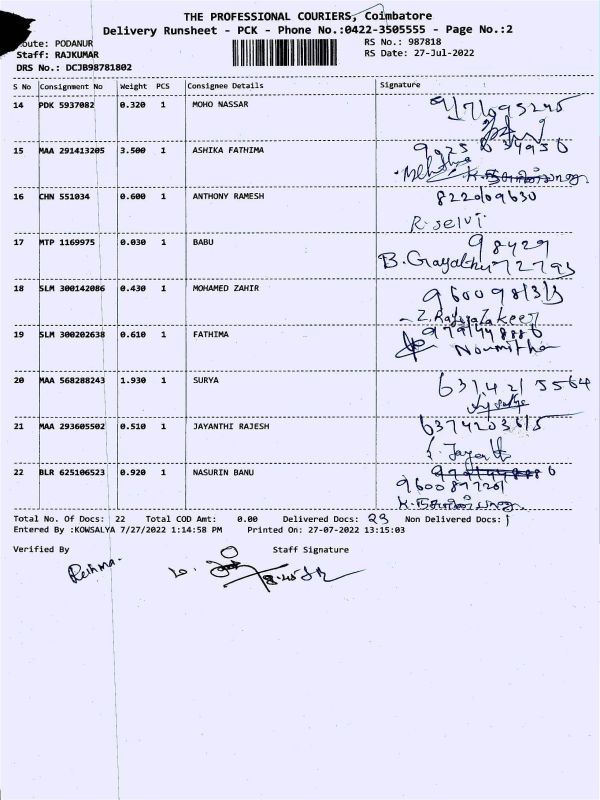 THE PROFESSIONAL COURIERS, Coimbatore
Delivery Runsheet - PCK - Phone No.:0422-3505555 - Page No.:2
oute: PODANUR
RS No.: 987818
Staff: RAJKUMAR
RS Date: 27-Jul-2022
DRS No.: DCJB98781802
S No Consignment No Weight PCS Consignee Details Signature
14 PDK 5937082 0.320 1 MOHO NASSAR
15 MAA 291413205 3.500 1 ASHIKA FATHIMA
16 CHN 551034 0.600 1 ANTHONY RAMESH 8220109630
R-selvi
17 MTP 1169975 0.030 1 BABU 98429
B. Gayathri 72793
18 SLM 300142086 0.430 1 MOHAMED ZAHIR
19 SLM 300202638 0.610 1 FATHIMA
Noumitha
20 MAA 568288243 1.930 1 SURYA 6374215564
21 MAA 293605502 0.510 1 JAYANTHI RAJESH 6374203615
22 BLR 625106523 0.920 1 NASURIN BANU
9600897201
Total No. Of Docs: 22 Total COD Amt: 0.00 Delivered Docs: Non Delivered Docs: 1
Entered By :KOWSALYA 7/27/2022 1:14:58 PM Printed On: 27-07-2022 13:15:03
Verified By Staff Signature
Reshma.